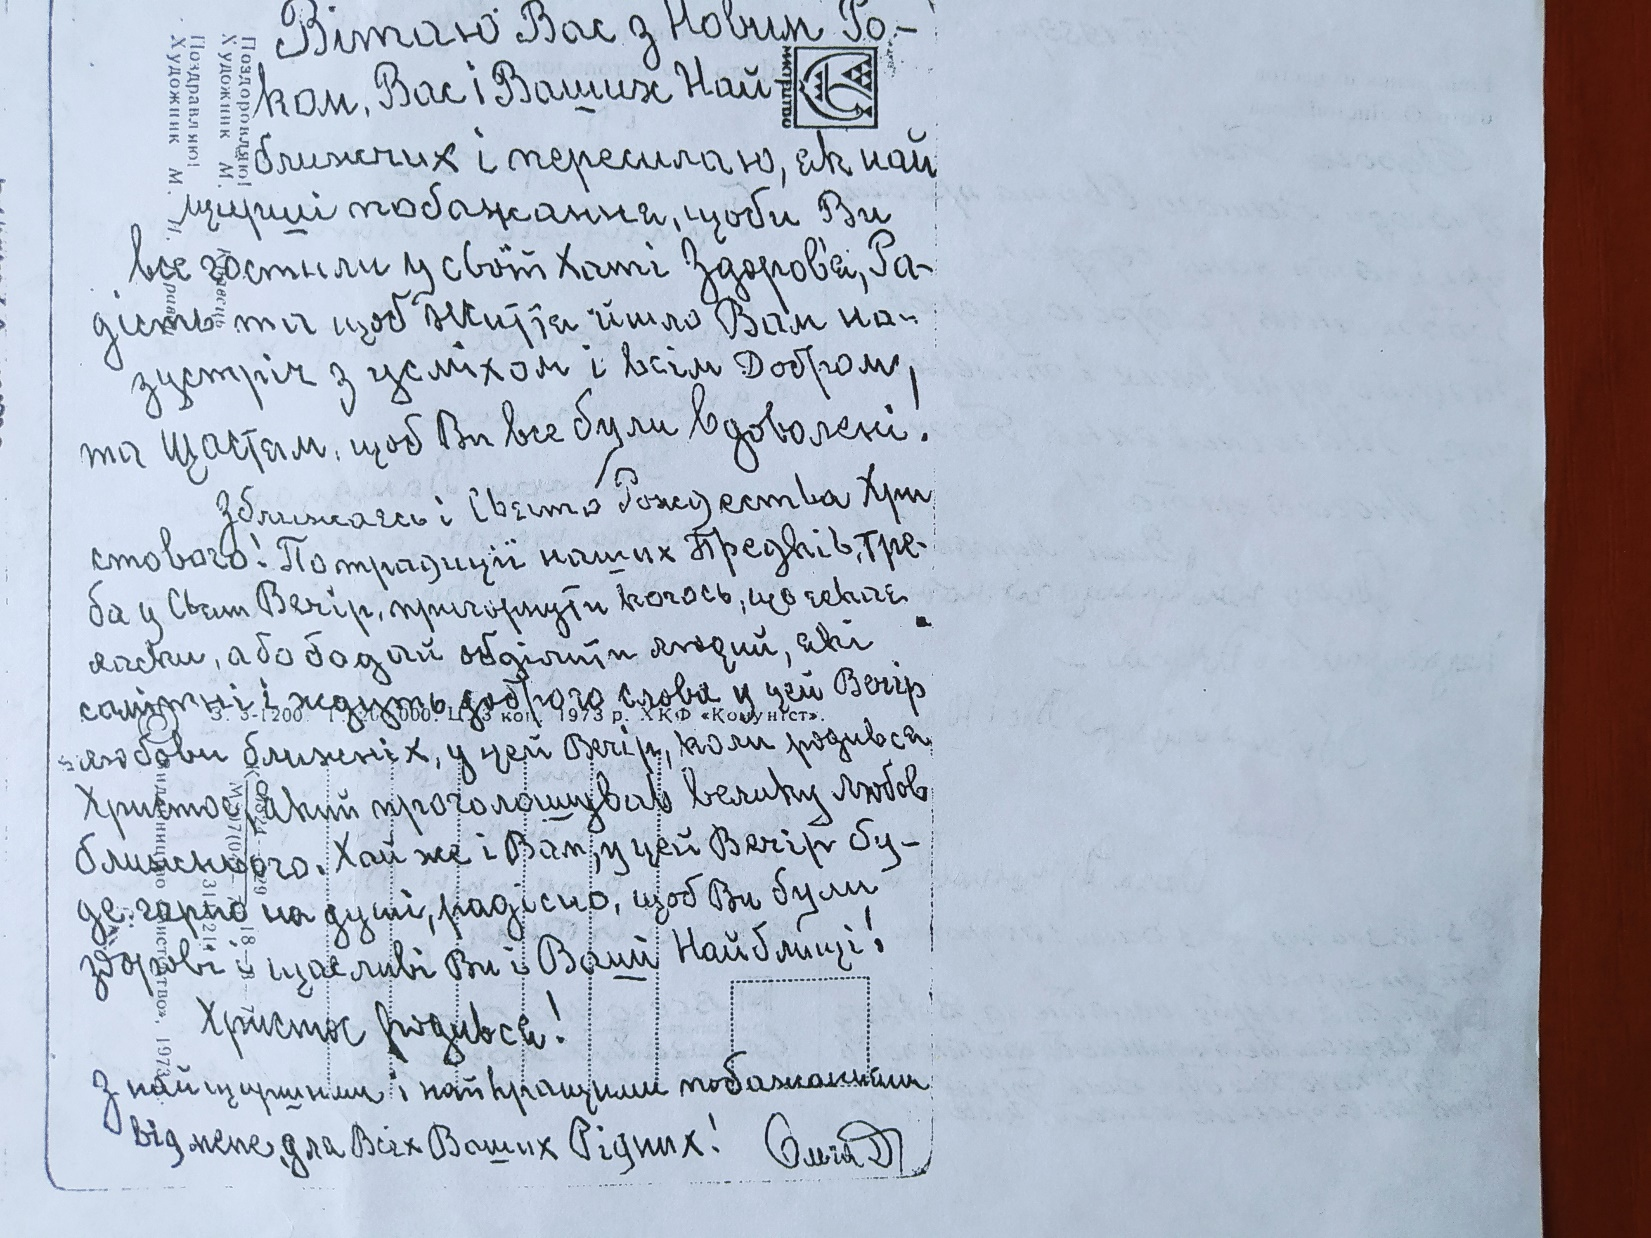 Вітаю Вас з Новим Ро-
ком, Вас і Ваших Най-
ближчих і пересилаю, як най
щиріші побажання, щоби Ви
все гостили у своїй хаті Здоров'я, Ра-
дість та щоб Життя йшло Вам на-
зустріч з усміхом і всім Добром,
та Щастям, щоб Ви все були вдоволені!
Зближаєсь і Свято Рождества Хри
стового! По традиції наших Предків, тре-
ба у Свят Вечір, пригорнути когось, що
ласки, або бодай обділити людий, які
самітні і ждуть доброго слова у цей Вечір
любови ближніх, у цей Вечір, коли родився
Христос, який проголошував велику любов
ближнього. Хай же і Вам, у цей Вечір бу-
де гарно на душі, радісно, щоб Ви були
здорові і щасливі Ви і Ваші Найближчі!
Христос родився!
З найщирішими і найкращими побажаннями
від мене для Всіх Ваших Рідних! Ольга Д
Поздоровляю!
Художник М.
Поздравляю!
Художник М. И.
МИСТЕЦТВО
З. 3-1200. 000. Ц. 3 коп. 1973 р. ХКФ «Комуніст».